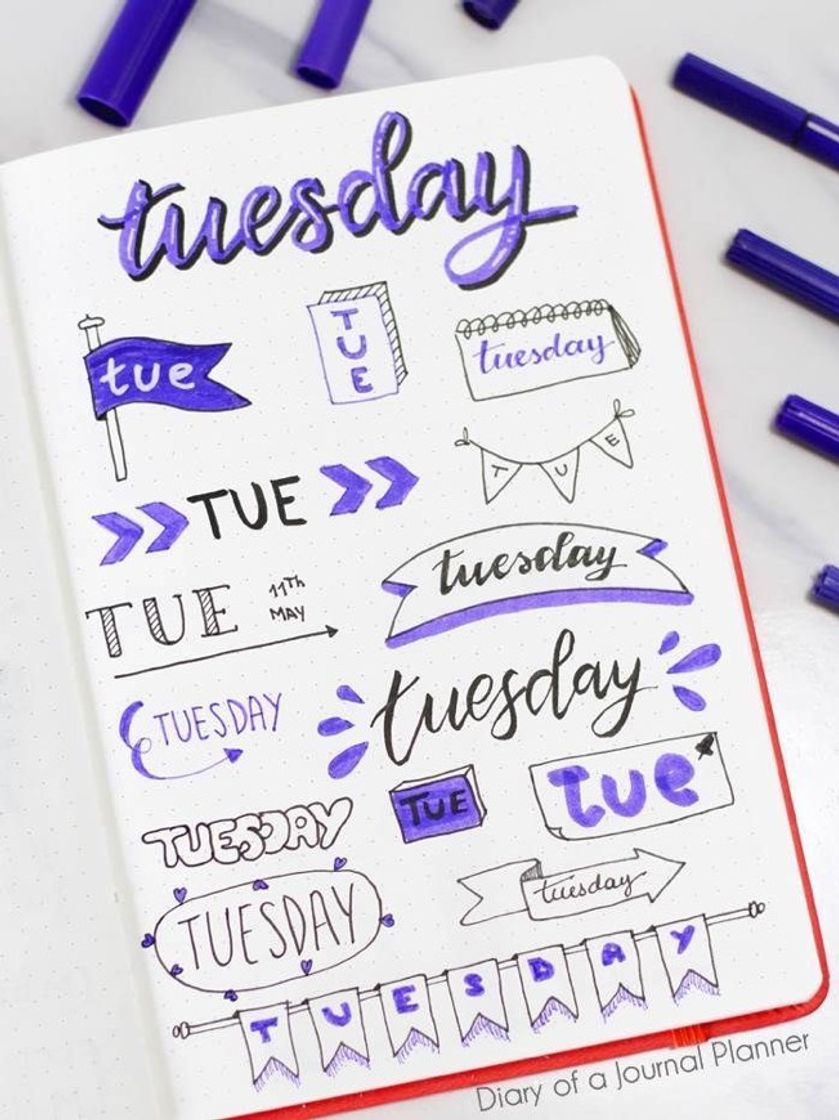 tuesday
tue
TUE
tuesday
TUE
TUE
TUE 11Th
MAY
tuesday
TUESDAY
tuesday
TUESDAY
TUE
tue
TUESDAY
tuesday
TUESDAY
Diary of a Journal Planner